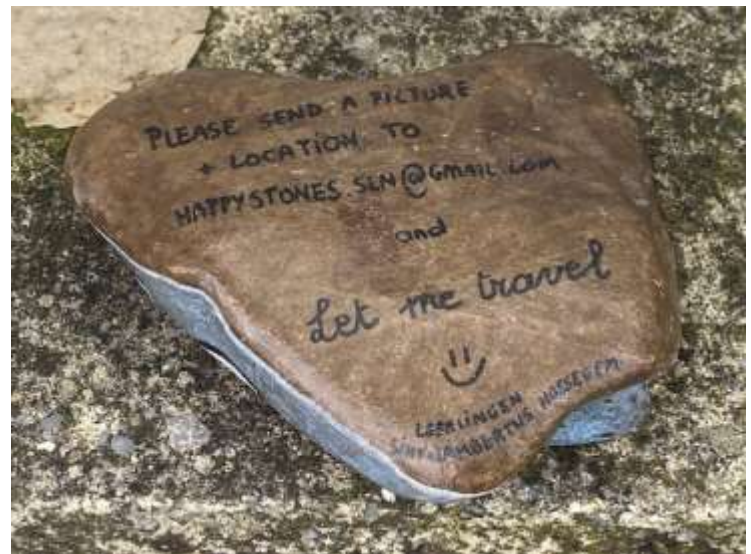 PLEASE SEND A PICTURE
+ LOCATION TO
HAPPYSTONES.SLN@GMAIL.COM
and
Let me travel
LEERLINGEN
SINT-LAMBERTUS